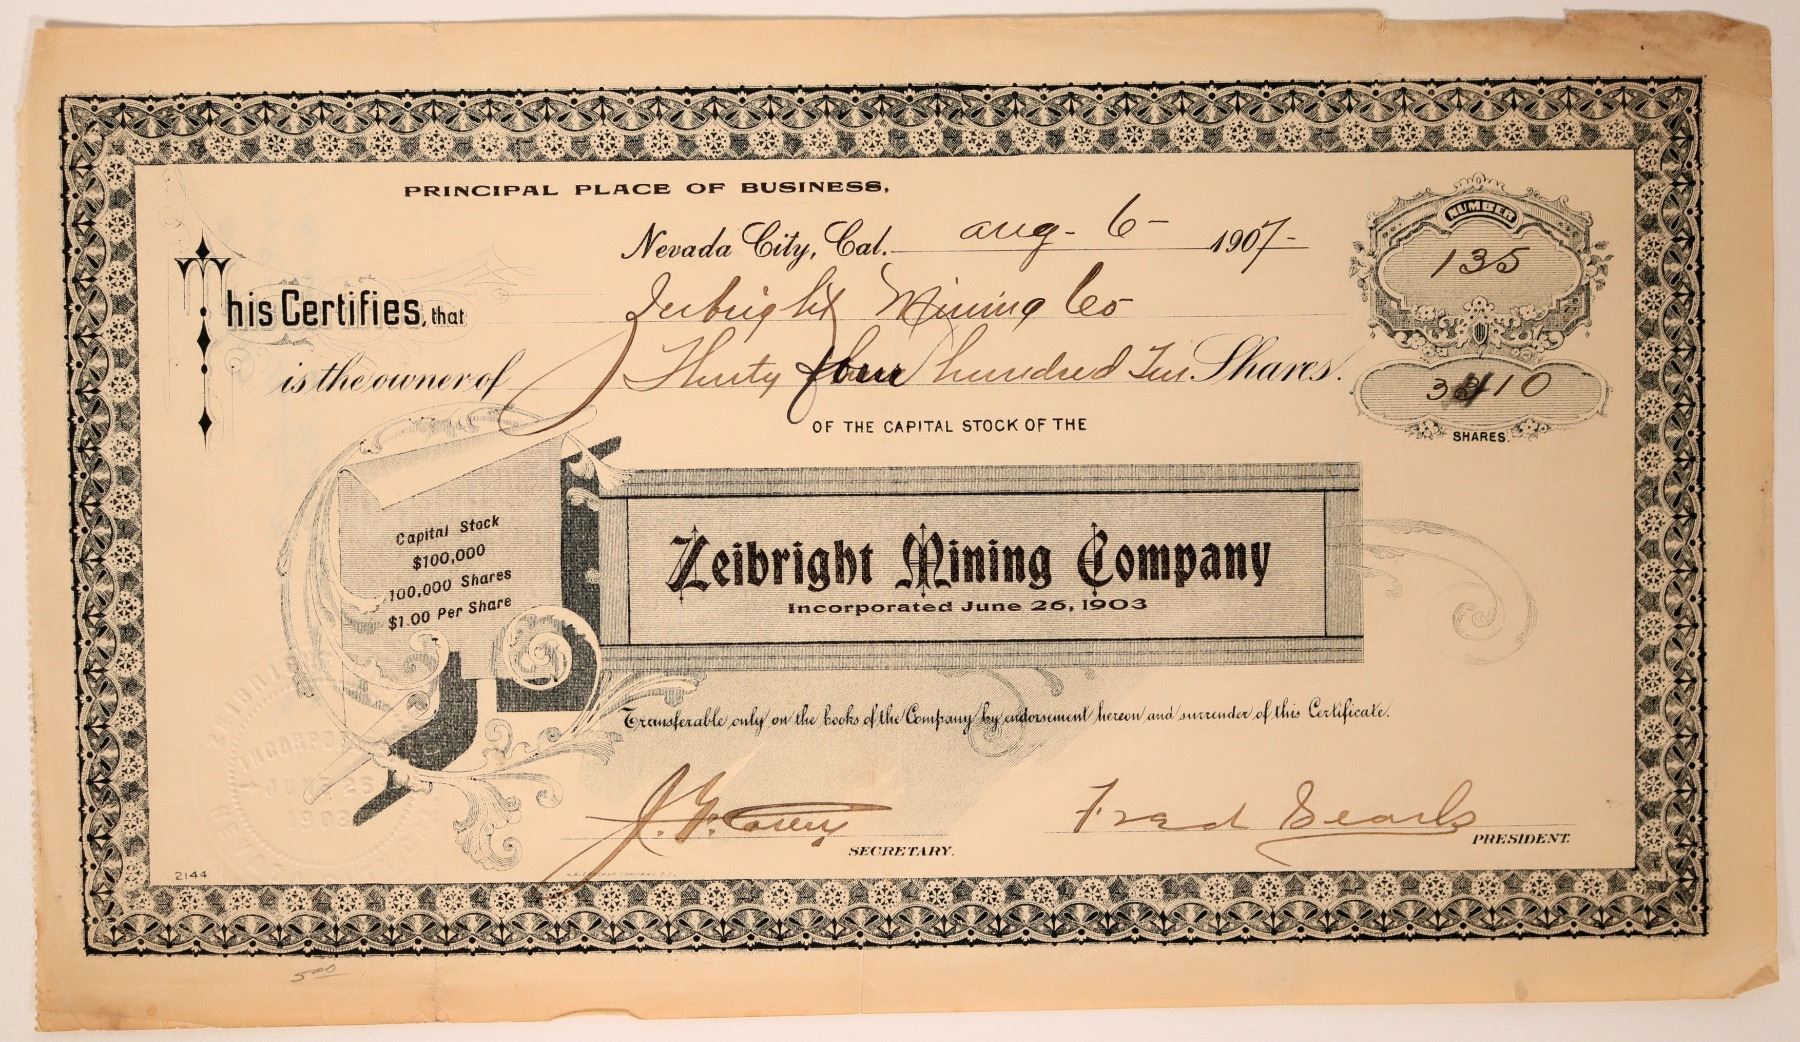 PRINCIPAL PLACE OF BUSINESS,
Nevada City, Cal. Aug - 6 - 1907 -
NUMBER
135
This Certifies, that Zeibright Mining Co
is the owner of Thirty four hundred Ten Shares.
3410
SHARES.
OF THE CAPITAL STOCK OF THE
Capital Stock
$100,000
100,000 Shares
$1.00 Per Share
Zeibright Mining Company
Incorporated June 26, 1903
Transferable only on the books of the Company by endorsement hereon and surrender of this Certificate.
INCORPO
JUNE 26
1903
J. F. Colley
SECRETARY.
Fred Searls
PRESIDENT.
2144
5.00